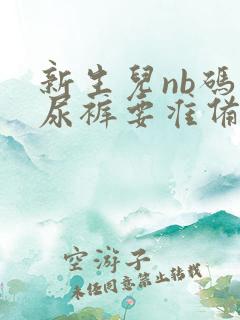 新生兒nb碼
尿褲要准備
空游子
未经同意禁止转载